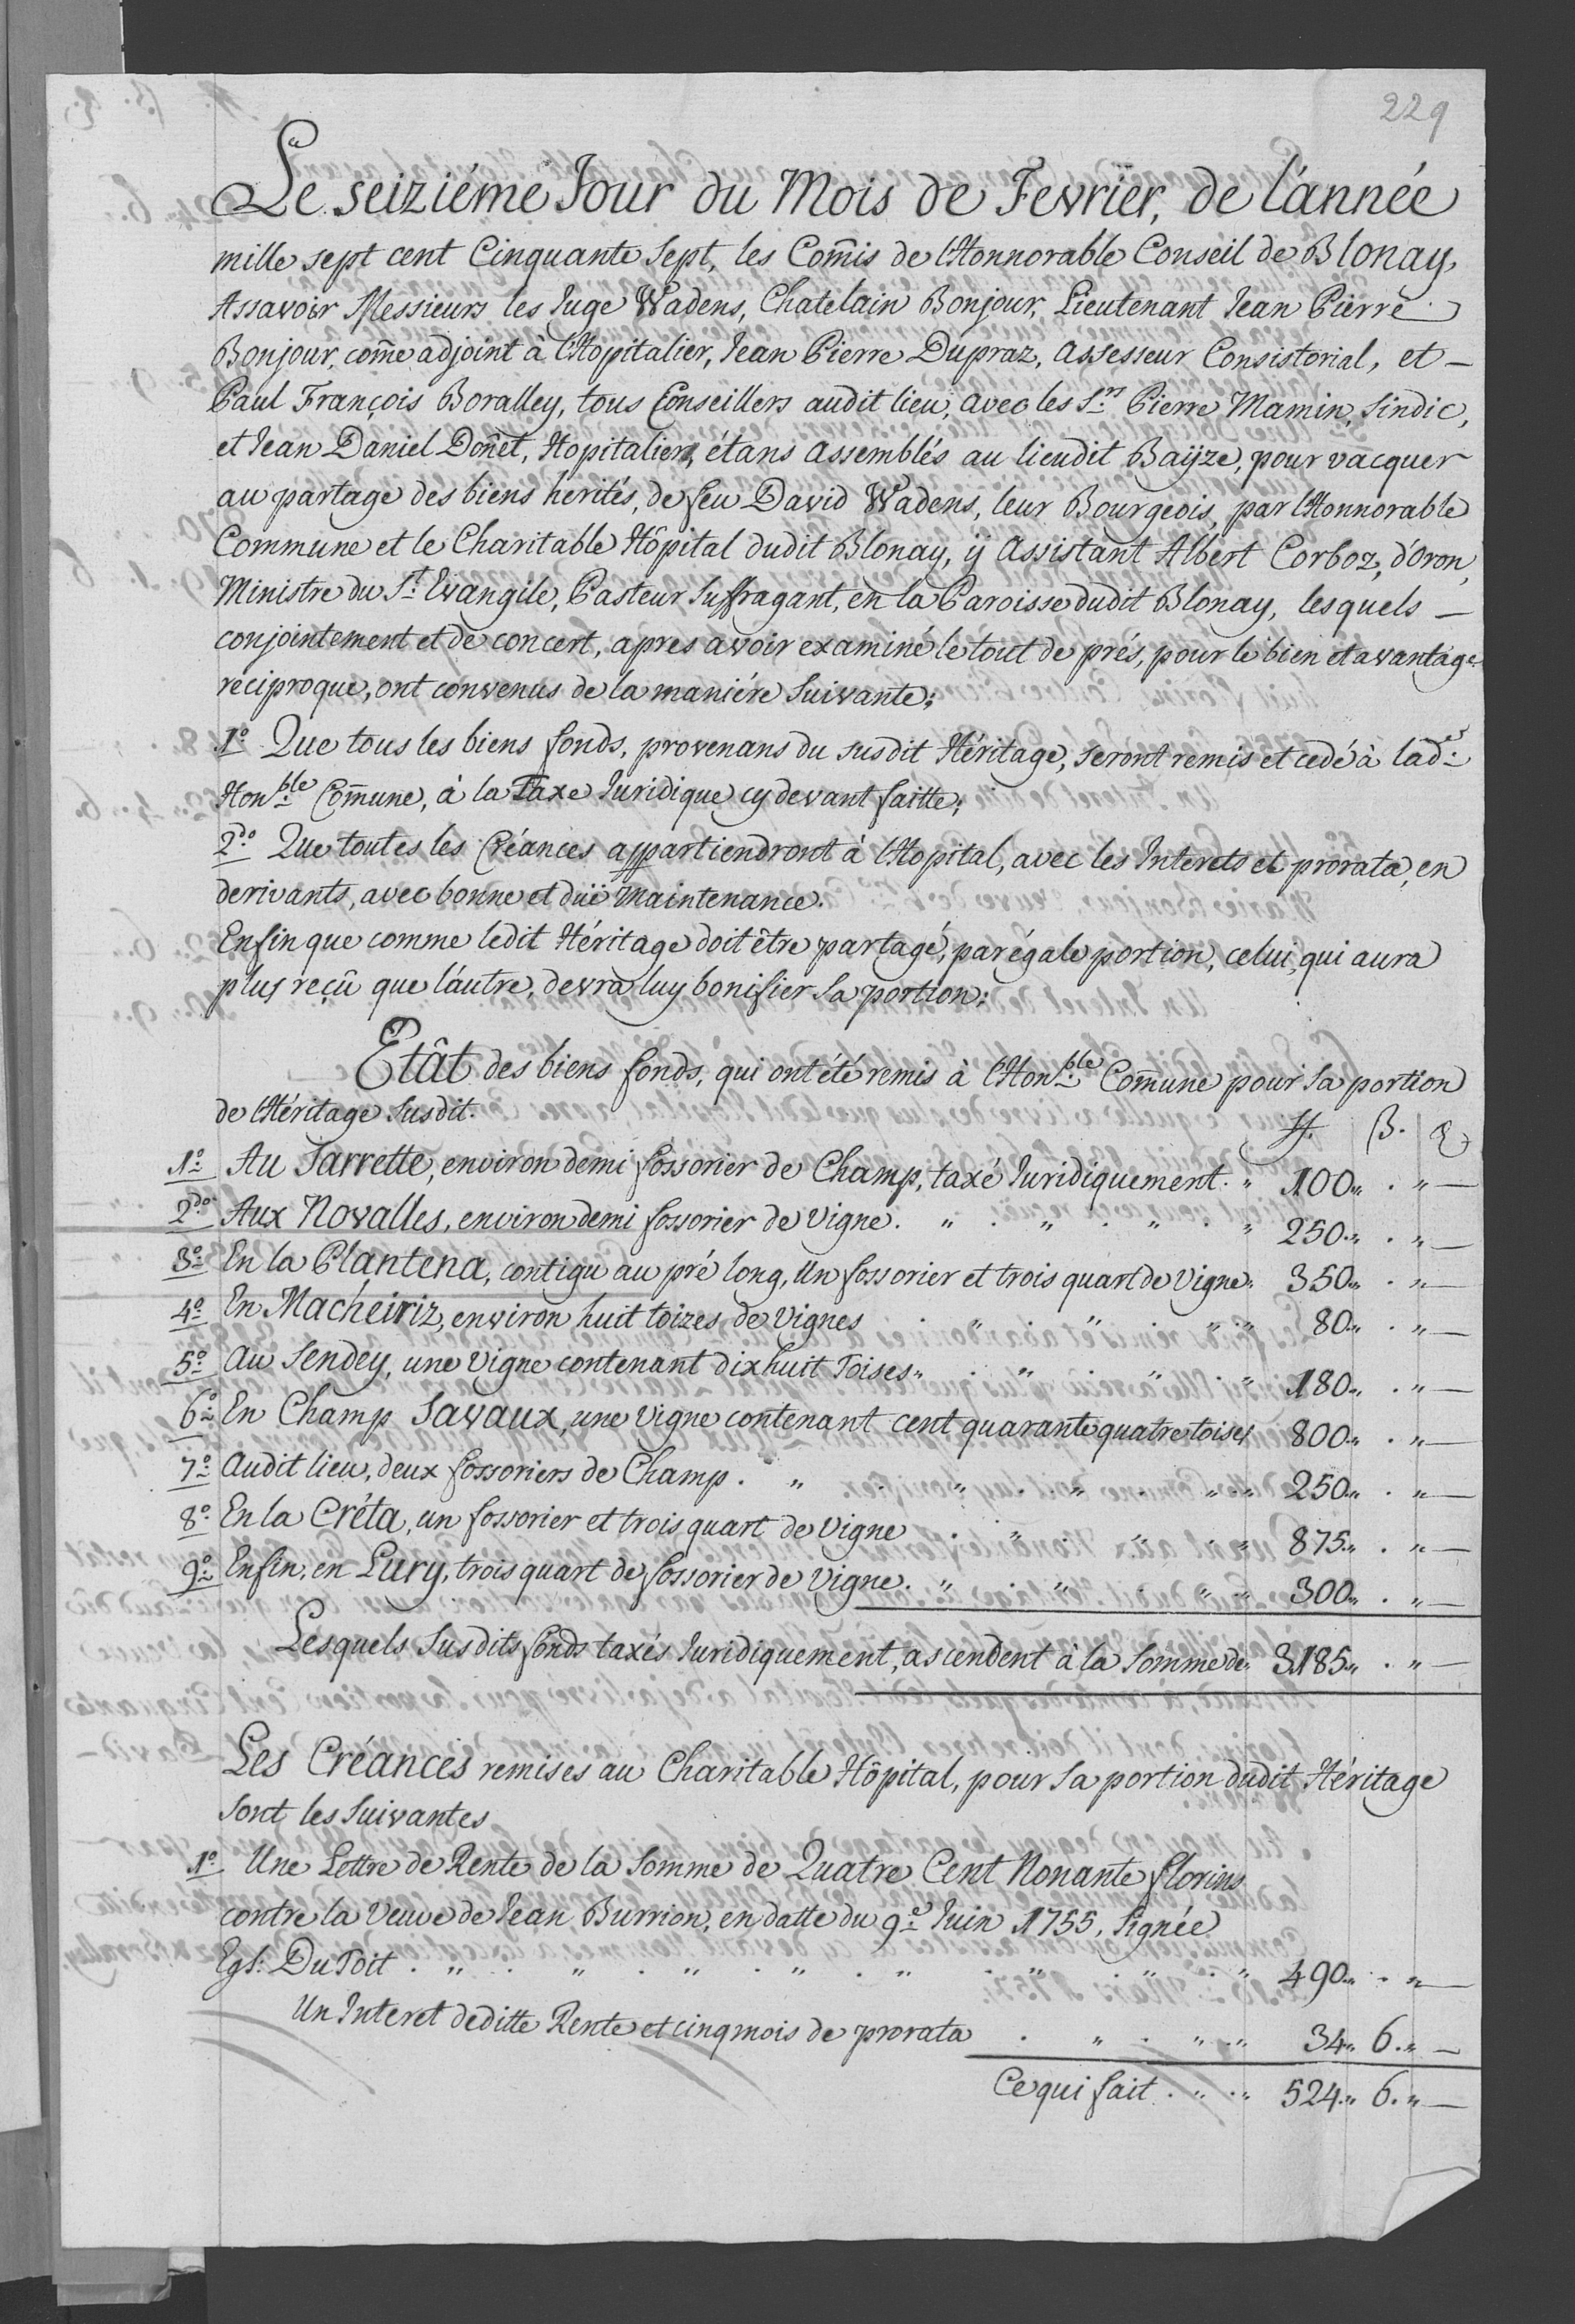 229
Le seiziéme Jour du Mois de Fevrier, de l'année
mille sept cent Cinquante Sept, les Com̃is de l'Honnorable Conseil de Blonay,
Assavoir Messieurs les Juge Wadens, Chatelain Bonjour, Lieutenant Jean Pierre
Bonjour, com̃e adjoint à l'Hopitalier, Jean Pierre Dupraz, Assesseur Consistorial, et —
Paul François Boralley, tous Conseillers audit lieu, avec les S.rs Pierre Mamin, Sindic,
et Jean Daniel Don̄et, Hopitalier, étans assemblés au lieudit Baÿze, pour vacquer
au partage des biens hérités, de feu David Wadens, leur Bourgeois, par l'Honnorable
Commune et le Charitable Hôpital dudit Blonay, ÿ assistant Albert Corboz, d'Oron,
Ministre du S.t Evangile, Pasteur Suffragant, en la Paroisse dudit Blonay, lesquels —
conjointement et de concert, apres avoir examiné le tout de prés, pour le bien et avantage
réciproque, ont convenus de la maniére Suivante;
1.o Que tous les biens fonds, provenans du susdit Héritage, seront remis et cedé à lad.e
Hon.ble Com̃une, à la Taxe Juridique cy devant faitte;
2.do Que toutes les Créances appartiendront à l'Hopital, avec les Interets et prorata, en
derivants, avec bonne et düe Maintenance.
Enfin que comme ledit Héritage doit être partagé, par égale portion, celui, qui aura
plus reçû que l'autre, devra luy bonifier Sa portion;
Etât des biens fonds, qui ont été remis à l'Hon.ble Com̃une pour Sa portion
de l'Héritage Susdit.
ff. ß. ₰
1.o Au Sarrette, environ demi fossorier de Champ, taxé Juridiquement. " 100 " . " —
2.do Aux Novalles, environ demi fossorier de Vigne. " . " . " . " 250 " . " —
3.o En la Plantena, contigu au pré long, Un fossorier et trois quart de Vigne " 350 " . " —
4.o En Macheiriz, environ huit toizes de Vignes . " . " . " . " 80 " . " —
5.o Au Sendey, une Vigne contenant dixhuit Toises " . " . " . " 180 " . " —
6.o En Champ Savaux, une Vigne contenant cent quarante quatre toises 800 " . " —
7.o Audit lieu, deux fossoriers de Champ. " . " . " . " " 250 " . " —
8.o En la Créta, un fossorier et trois quart de Vigne . " . " . " " 875 " . " —
9.o Enfin, en Lury, trois quart de fossorier de Vigne. " . " . " " 300 " . " —
Lesquels Susdits fonds taxés Juridiquement, ascendent à la Somme de " 3185 " . " —
Les Créances remises au Charitable Hôpital, pour Sa portion dudit Héritage
Sont les Suivantes
1.o Une Lettre de Rente de la Somme de Quatre Cent Nonante florins
contre la Veuve de Jean Burrion, en datte du 9.e Juin 1755, Signée
Egs: DuToit . " . " . " . " . " . " . " . " 490 " . " —
Un Interet deditte Rente et cinq mois de prorata . " . " " 34 " 6. " —
Ce qui fait . " " 524 " 6. " —